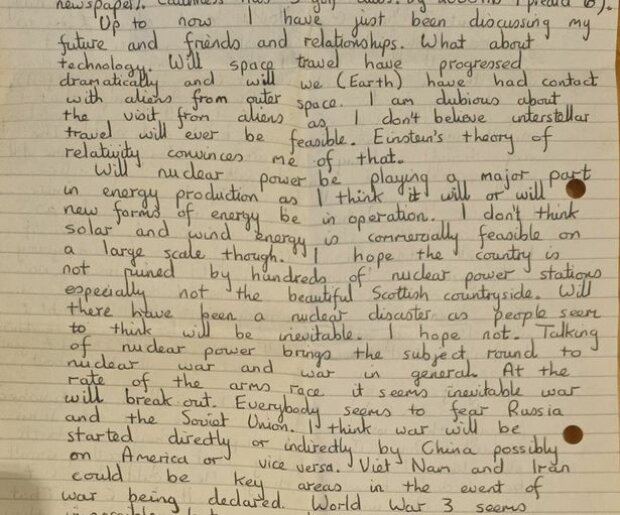 newspaper).
Up to now I have just been discussing my
future and friends and relationships. What about
technology. Will space travel have progressed
dramatically and will we (Earth) have had contact
with aliens from outer space. I am dubious about
the visit from aliens as I don't believe interstellar
travel will ever be feasible. Einstein's theory of
relativity convinces me of that.
Will nuclear power be playing a major part
in energy production as I think it will or will
new forms of energy be in operation. I don't think
solar and wind energy is commercially feasible on
a large scale though. I hope the country is
not ruined by hundreds of nuclear power stations
especially not the beautiful Scottish countryside. Will
there have been a nuclear disaster as people seem
to think will be inevitable. I hope not. Talking
of nuclear power brings the subject round to
nuclear war and war in general. At the
rate of the arms race it seems inevitable war
will break out. Everybody seems to fear Russia
and the Soviet Union. I think war will be
started directly or indirectly by China possibly
on America or vice versa. Viet Nam and Iran
could be key areas in the event of
war being declared. World War 3 seems